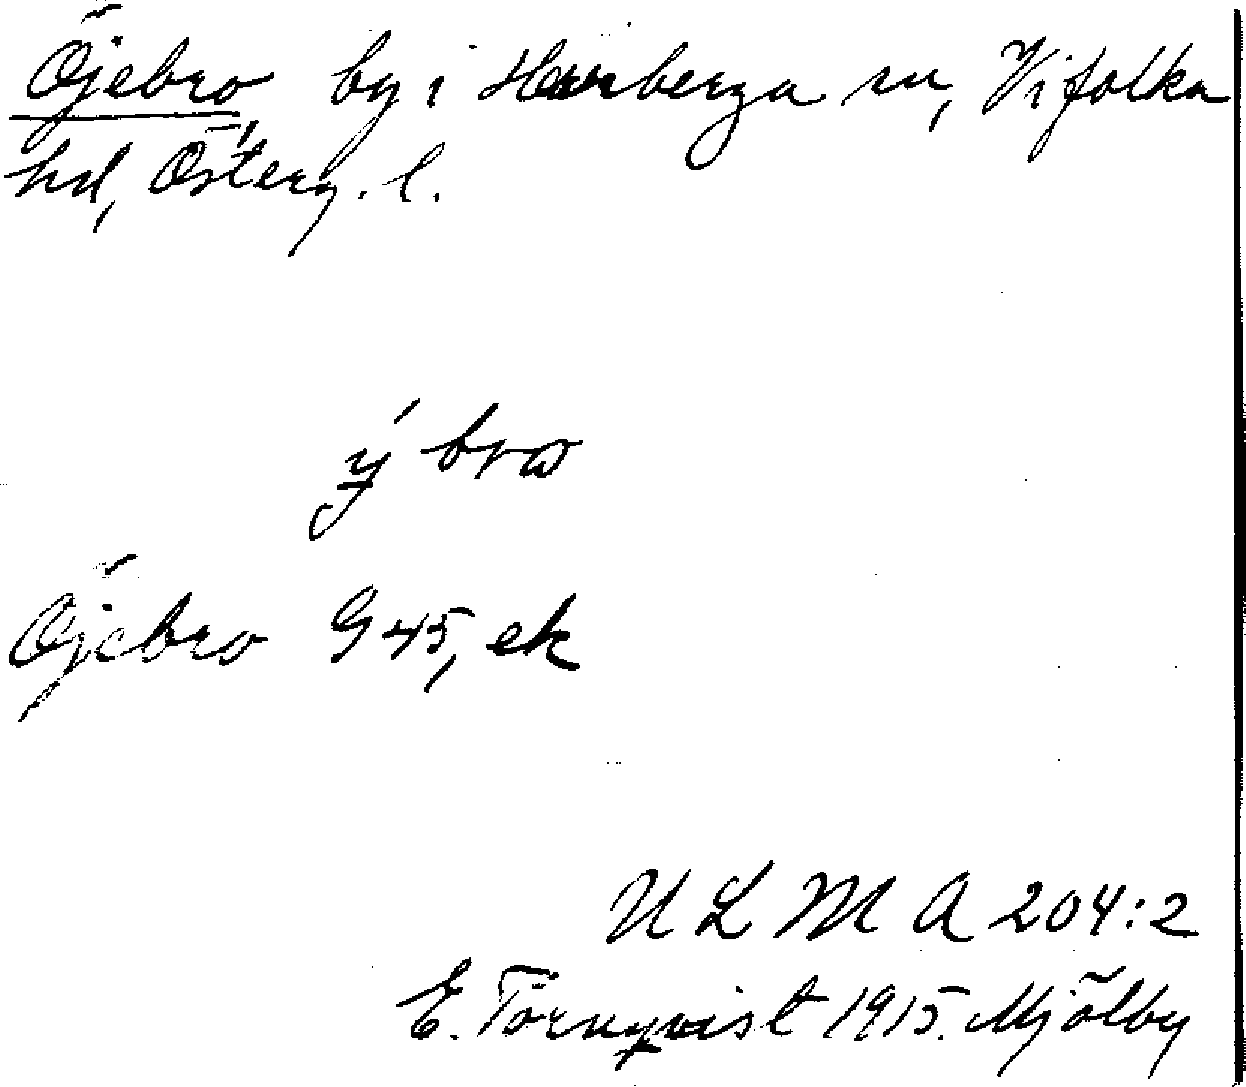 Öjebro by i Harberga sn, Vifolka
hd, Österg. l.
ÿ́ bro
Öjebro G 45, ek
U L M A 204:2
E. Törnqvist 1915. Mjölby